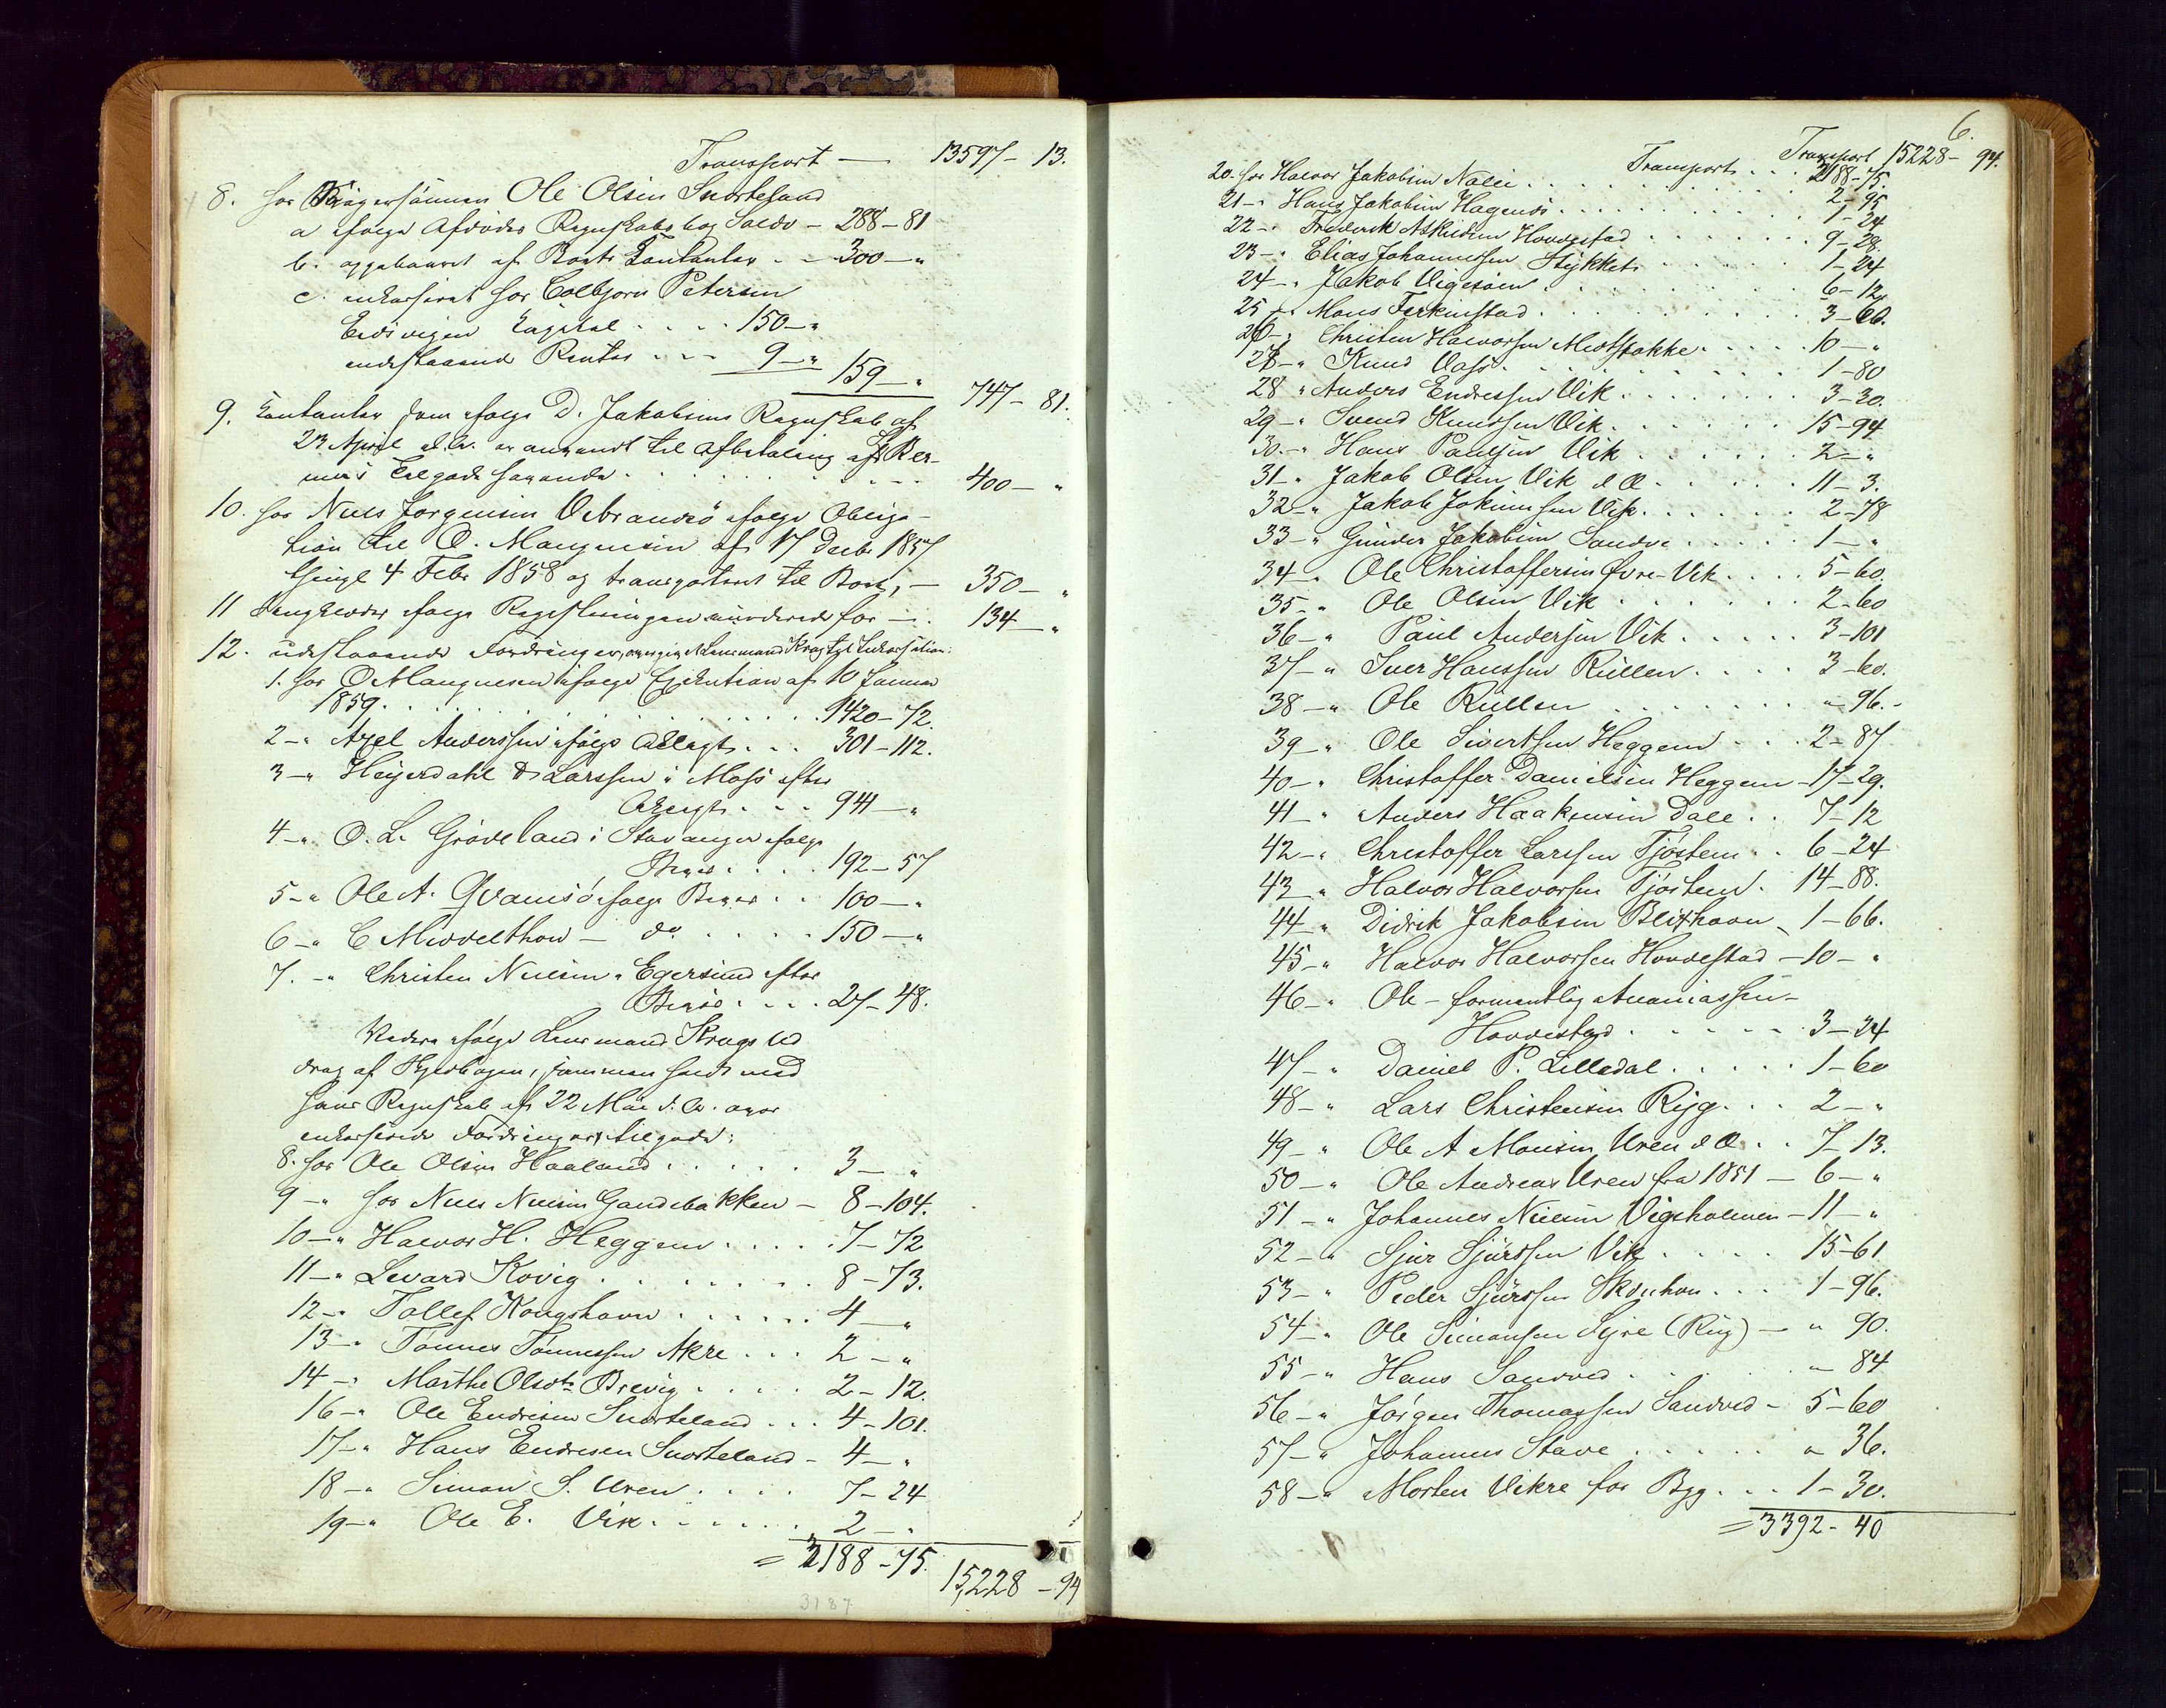 Transport — 13597 - 13.
8. hos Svigersønnen Ole Olsen Snorteland
a ifølge Afdødes Regnskabsbog Saldo - 288 - 81
b. oppebaaret af Boets Contanter - - 300 - "
c. inkasseret hos Colbjørn Petersen
Eidsvigen Capital . . . . 150 - "
indestaaende Renter . . - 9 - " 159 - " 747 - 81.
9. Contanter som ifølge D. Jakobsens Regnskab af
23 April d. A. er anvendt til Afbetaling af
Tilgodehavende . . . . . 400 - "
10. hos Niels Jørgensen Vibrandsø ifølge Obliga-
tion til O. Mangnesen af 17 Decbr 1857
thingl 4 Febr 1858 og transporteret til Boet, - 350 - "
11 ifølge Registeringen vurderede for - . 134 - "
12. udestaaende Fordringer, Lensmand Krag til Inkassation:
1. hos O Mangnesen ifølge Exekution af 10 Januar
1859. . . . . . . . . 1420 - 72.
2 - " Axel Anderssen ifølge Aklagt . . . 301 - 112.
3 - " Heyerdahl & Larssen i Moss efter
. . . 941 - "
4 - " O. L. Grödeland i Stavanger ifølge
Beviis . . . . 192 - 57
5 - " Ole A. Qvamsö ifølge Beviis . . 100 - "
6 - " C Middelthon - do . . . . . 150 - "
7. - " Christen Nielsen Egersund efter
Beviis . . . . 27 - 48.
Videre ifølge Lensmand Krags Ud
drag af Skyldbogen, sammenholdt med
hans Regnskab af 22 Mai d. A. over
inkasserede Fordringer, tilgode:
8. hos Ole Olsen Haaland . . . . . 3 - "
9 - " hos Niels Nielsen Gandebakken - 8 - 104.
10 - " Halvor H. Heggem . . . . . 7 - 72
11 - " Levard Kovig . . . . . . . 8 - 73.
12 - " Tollef Kongshavn . . . . . . 4 - "
13 - " Tønnes Tønnessen Akre . . . 2 - "
14 - " Marthe Olsdtr Brevig . . . . 2 - 12.
16 - " Ole Endresen Snorteland . . . 4 - 101.
17 - " Hans Endresen Snorteland - 4 - "
18 - " Simon S. Uren . . . . 7 - 24
19 - " Ole E. Vik . . . . . . 2 - "
= 3188 - 75. 15,228 - 94
3187
6.
Transport 15228 - 94.
Transport . . . 3188 - 75.
20. hos Halvor Jakobsen Nalei . . . . . 2 - 95
21 - " Hans Jakobsen Hagenæs . . . . . 1 - 24
22 - " Frederik Askildsen Hovdestad . . . . . 9 - 28.
23 - " Elias Johannessen Stykket . . . . . 1 - 24
24 - " Jakob Vigesøen . . . . . 6 - 12
25 - " Mons Ferkinstad . . . . . 3 - 60.
26 - " Christen Halvorsen Midtstokke . . . . 10 - "
27 - " Knud Vass . . . . . 1 - 80
28 " Anders Endresen Vik . . . . . 3 - 30.
29 - " Svend Knudsen Vik . . . . . 15 - 94
30. - " Hans Paulsen Vik . . . . . 2 - "
31 - " Jakob Olsen Vik d Æ . . . . . 11 - 3.
32 - " Jakob Jokumsen Vik . . . . . 2 - 78
33 - " Gunder Jakobsen Sandve . . . . 1 - "
34 - " Ole Christoffersen Øvre-Vik . . . . 5 - 60.
35 - " Ole Olsen Vik . . . . . 2 - 60
36 - " Paul Andersen Vik . . . . . 3 - 101
37 - " Iver Hanssen Rullen . . . . 3 - 60.
38 - " Ole Rullen . . . . . " - 96. -
39 - " Ole Sivertsen Heggem . . . 2 - 87
40 - " Christoffer Danielsen Heggem - 17 - 29.
41 - " Anders Haakensen Dale . . 7 - 12
42 - " Christoffer Larssen Tjøstem . . 6 - 24
43 - " Halvor Halvorsen Tjøstem . 14 - 88.
44 - " Didrik Jakobsen Blixhavn - 1 - 66.
45 - " Halvor Halvorsen Hovdestad - 10 - "
46 - " Ole - formentlig Ananiassen -
Hovdestad . . . . . . 3 - 24
47 - " Daniel P. Lilledal . . . . . 1 - 60
48 - " Lars Christensen Ryg . . . 2 - "
49 - " Ole A Monsen Uren d Æ . . 7 - 13.
50 - " Ole Andreas Uren fra 1851 - 6 - "
51 - " Johannes Nielsen Vigsholmen - 11 - "
52 - " Sjur Sjurssen Vik . . . . 15 - 61
53 - " Peder Sjurssen . . . 1 - 96.
54 - " Ole Simonsen Syre (Ryg) - " 90.
55 - " Hans Sandved . . . . . " - 84
56 - " Jörgen Thomassen Sandved - 5 - 60
57 - " Johannes Stave . . . . . " 36.
58 - " Morten Vikre for Byg . . . 1 - 30.
= 3392 - 40